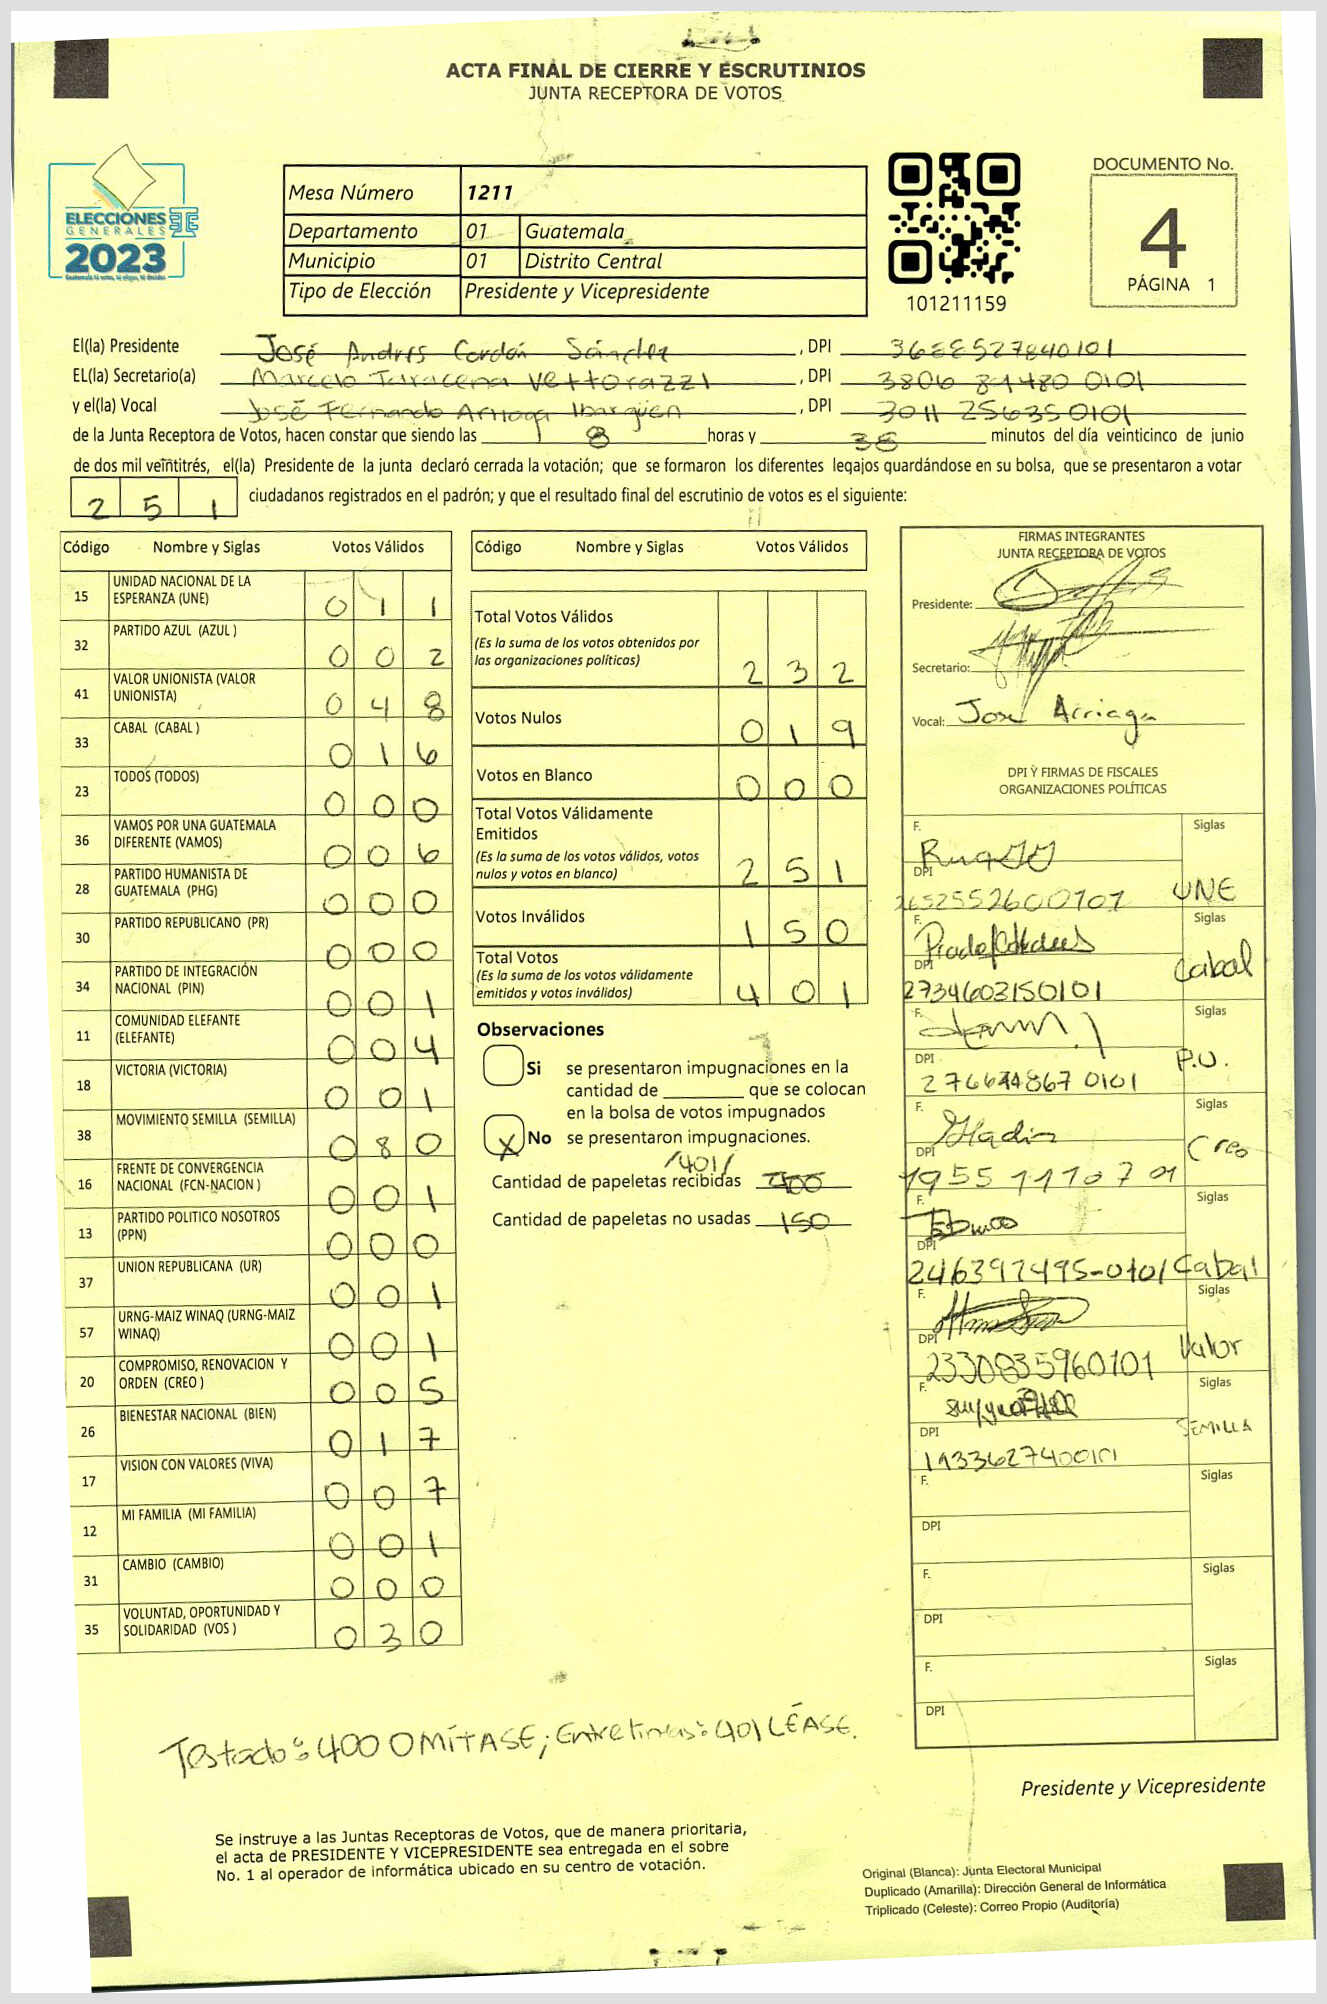 ACTA FINAL DE CIERRE Y ESCRUTINIOS
JUNTA RECEPTORA DE VOTOS
ELECCIONES
GENERALES
2023
Mesa Número 1211
Departamento 01 Guatemala
Municipio 01 Distrito Central
Tipo de Elección Presidente y Vicepresidente
101211159
DOCUMENTO No.
4
PÁGINA 1
El(la) Presidente José Andrés Cordón Sánchez, DPI 3688527840101
EL(la) Secretario(a) Marcelo Taracena Vettorazzi, DPI 3806 89480 0101
y el(la) Vocal José Fernando Arriaga Ibargüen, DPI 3011 256350101
de la Junta Receptora de Votos, hacen constar que siendo las 18 horas y 38 minutos del día veinticinco de junio
de dos mil veintitrés, el(la) Presidente de la junta declaró cerrada la votación; que se formaron los diferentes legajos guardándose en su bolsa, que se presentaron a votar
251 ciudadanos registrados en el padrón; y que el resultado final del escrutinio de votos es el siguiente:
Código Nombre y Siglas Votos Válidos
15 UNIDAD NACIONAL DE LA ESPERANZA (UNE) 0 1 1
32 PARTIDO AZUL (AZUL ) 0 0 2
41 VALOR UNIONISTA (VALOR UNIONISTA) 0 4 8
33 CABAL (CABAL ) 0 1 6
23 TODOS (TODOS) 0 0 0
36 VAMOS POR UNA GUATEMALA DIFERENTE (VAMOS) 0 0 6
28 PARTIDO HUMANISTA DE GUATEMALA (PHG) 0 0 0
30 PARTIDO REPUBLICANO (PR) 0 0 0
34 PARTIDO DE INTEGRACIÓN NACIONAL (PIN) 0 0 1
11 COMUNIDAD ELEFANTE (ELEFANTE) 0 0 4
18 VICTORIA (VICTORIA) 0 0 1
38 MOVIMIENTO SEMILLA (SEMILLA) 0 8 0
16 FRENTE DE CONVERGENCIA NACIONAL (FCN-NACION ) 0 0 1
13 PARTIDO POLITICO NOSOTROS (PPN) 0 0 0
37 UNION REPUBLICANA (UR) 0 0 1
57 URNG-MAIZ WINAQ (URNG-MAIZ WINAQ) 0 0 1
20 COMPROMISO, RENOVACION Y ORDEN (CREO ) 0 0 5
26 BIENESTAR NACIONAL (BIEN) 0 1 7
17 VISION CON VALORES (VIVA) 0 0 7
12 MI FAMILIA (MI FAMILIA) 0 0 1
31 CAMBIO (CAMBIO) 0 0 0
35 VOLUNTAD, OPORTUNIDAD Y SOLIDARIDAD (VOS ) 0 3 0
Código Nombre y Siglas Votos Válidos
Total Votos Válidos
(Es la suma de los votos obtenidos por
las organizaciones políticas) 2 3 2
Votos Nulos 0 1 9
Votos en Blanco 0 0 0
Total Votos Válidamente
Emitidos
(Es la suma de los votos válidos, votos
nulos y votos en blanco) 2 5 1
Votos Inválidos 1 5 0
Total Votos
(Es la suma de los votos válidamente
emitidos y votos inválidos) 4 0 1
Observaciones
Si se presentaron impugnaciones en la
cantidad de ________ que se colocan
en la bolsa de votos impugnados
X No se presentaron impugnaciones.
/401/
Cantidad de papeletas recibidas 400
Cantidad de papeletas no usadas 150
FIRMAS INTEGRANTES
JUNTA RECEPTORA DE VOTOS
Presidente:
Secretario:
Vocal: José Arriaga
DPI Y FIRMAS DE FISCALES
ORGANIZACIONES POLÍTICAS
F. Siglas
DPI
2652552600101 UNE
F. Siglas
DPI
2734603150101 Cabal
F. Siglas
DPI P.U.
F. Siglas
DPI Creo
F. Siglas
DPI
Cabal
F. Siglas
DPI
2330835960101 Valor
F. Siglas
DPI SEMILLA
F. Siglas
DPI
F. Siglas
DPI
F. Siglas
DPI
Testado: 400 OMÍTASE; Entrelineas: 401 LÉASE.
Presidente y Vicepresidente
Se instruye a las Juntas Receptoras de Votos, que de manera prioritaria,
el acta de PRESIDENTE Y VICEPRESIDENTE sea entregada en el sobre
No. 1 al operador de informática ubicado en su centro de votación.
Original (Blanca): Junta Electoral Municipal
Duplicado (Amarilla): Dirección General de Informática
Triplicado (Celeste): Correo Propio (Auditoría)